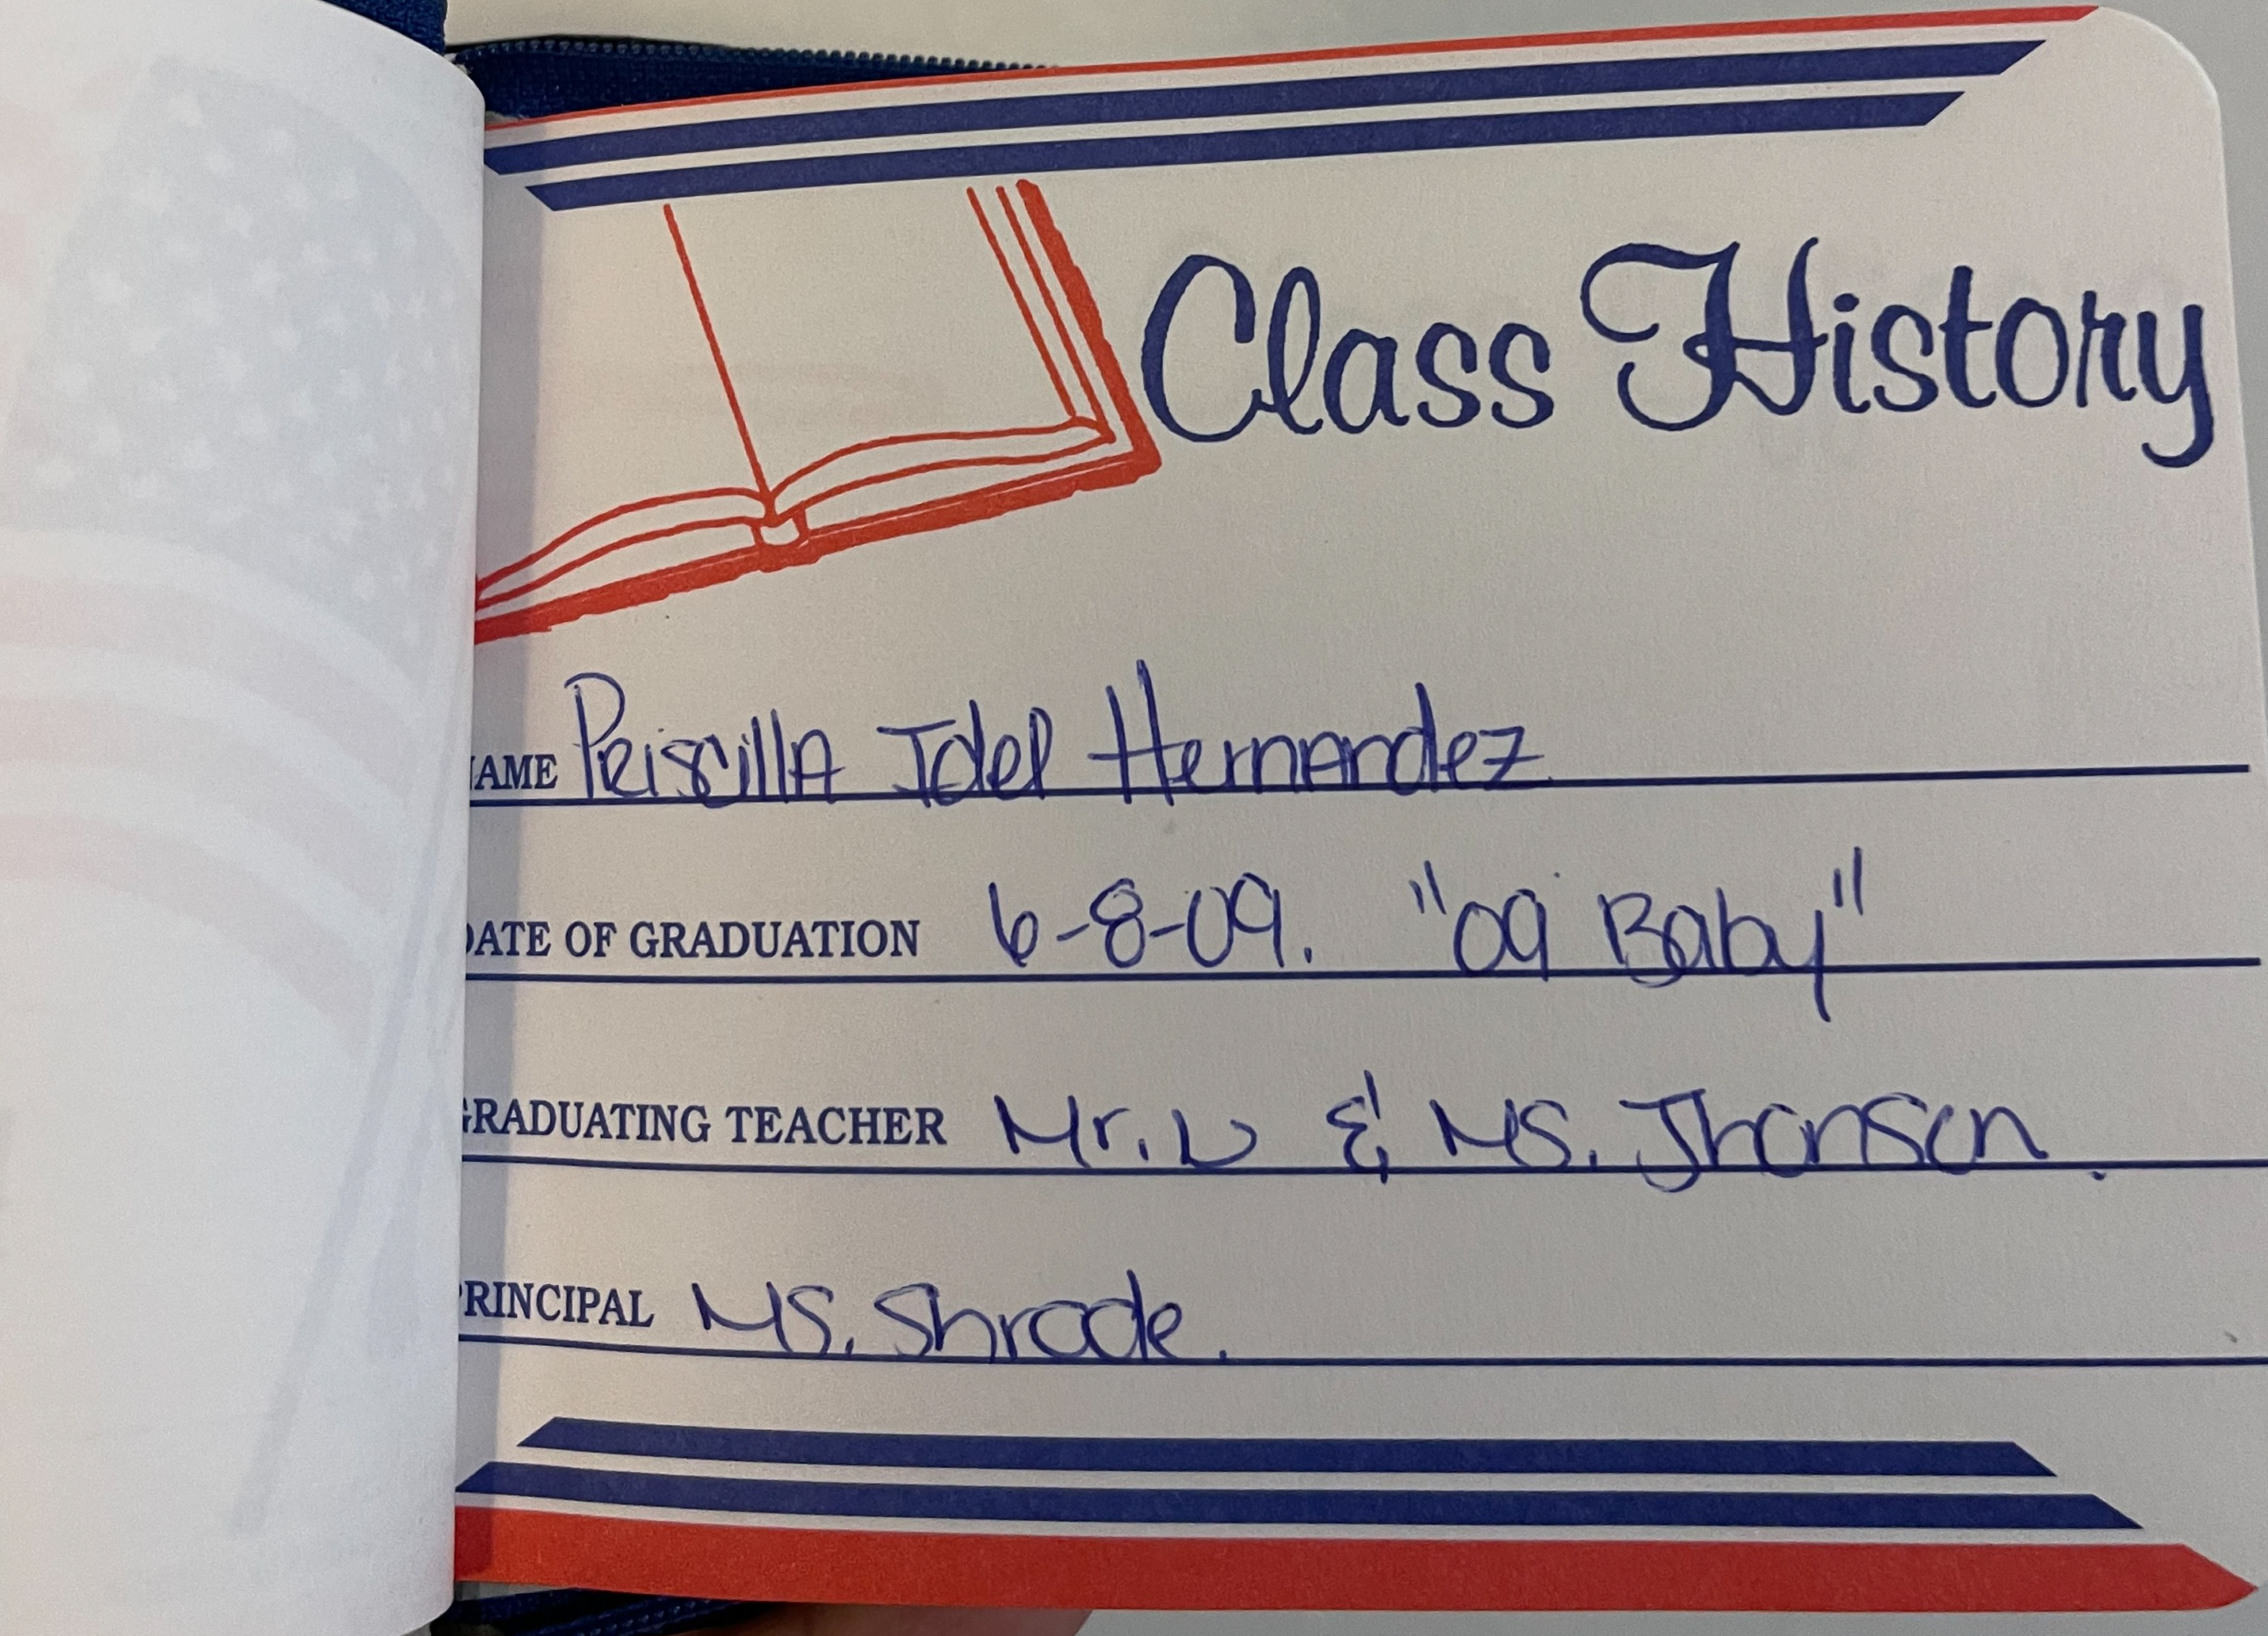 Class History
AME Priscilla Idel Hernandez
DATE OF GRADUATION 6-8-09. "09 Baby"
GRADUATING TEACHER Mr. L & Ms. Jhonson.
PRINCIPAL Ms. Shrode.